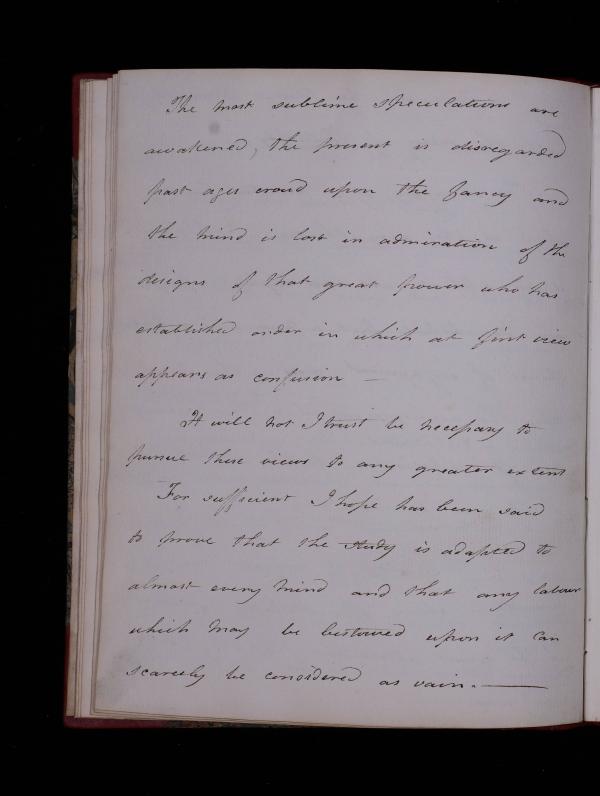 The most sublime speculations are
awakened, the present is disregarded
past ages croud upon the fancy and
the mind is lost in admiration of the
designs of that great power who has
established order in which at first view
appears as confusion —
It will not I trust be necessary to
pursue these views to any greater extent
For sufficient I hope has been said
to prove that the study is adapted to
almost every mind and that any labour
which may be bestowed upon it can
scarcely be considered as vain. —